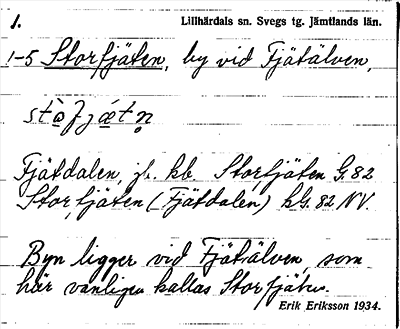 1.
Lillhärdals sn. Svegs tg. Jämtlands län.
1-5 Storfjäten, by vid Fjätälven,
Fjätdalen, jb. kb. Storfjäten G. 82
Storfjäten (Fjätdalen) hG. 82 NV.
Byn ligger vid Fjätälven som
här vanligen kallas Storfjäten.
Erik Eriksson 1934.